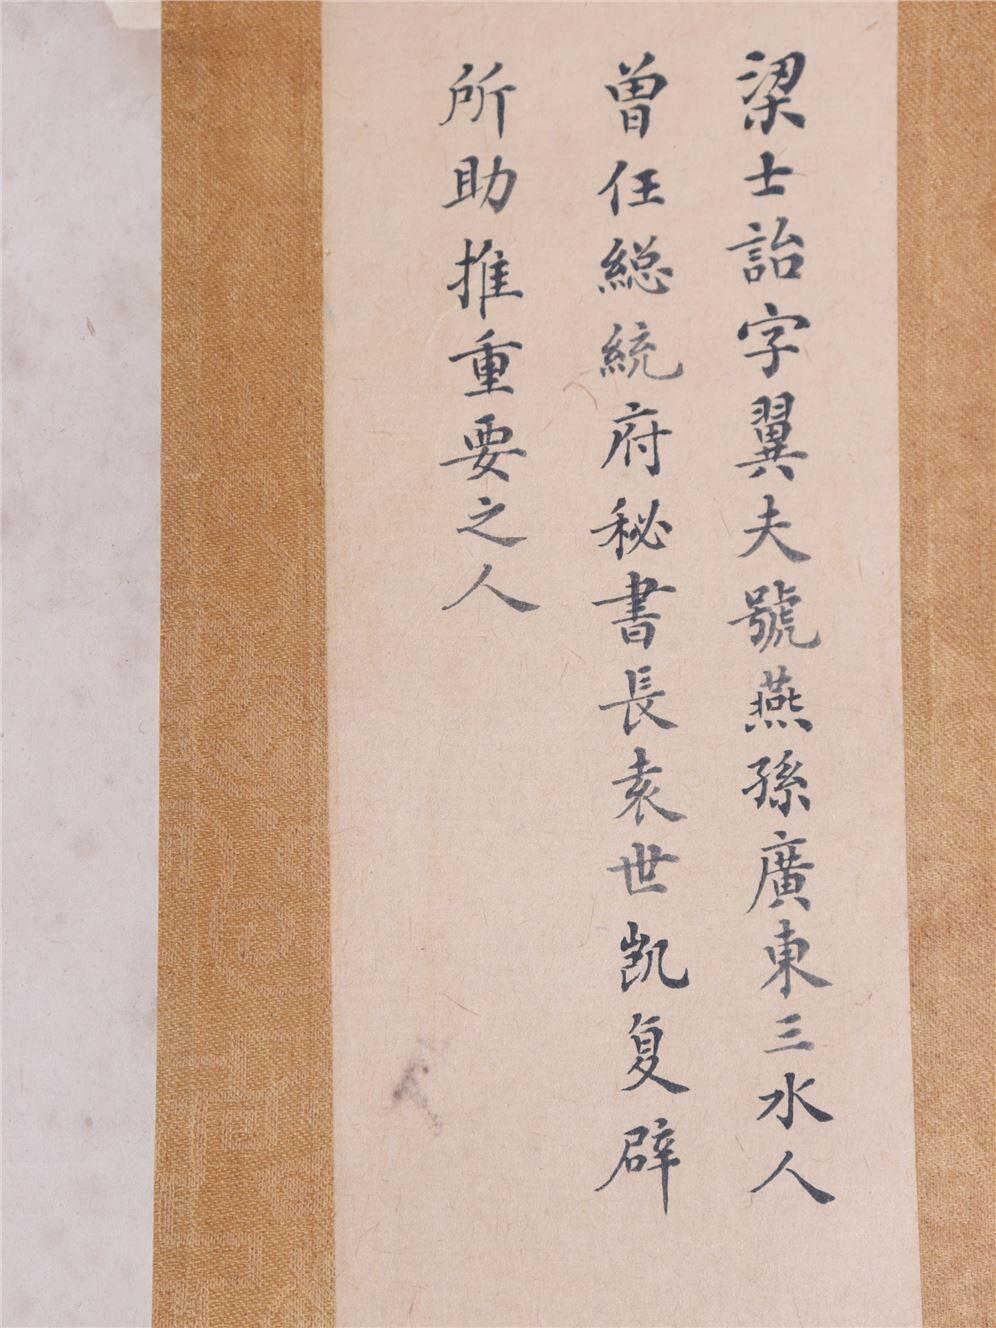 梁士詒字翼夫號燕孫廣東三水人
曾任総統府秘書長袁世凯复辟
所助推重要之人